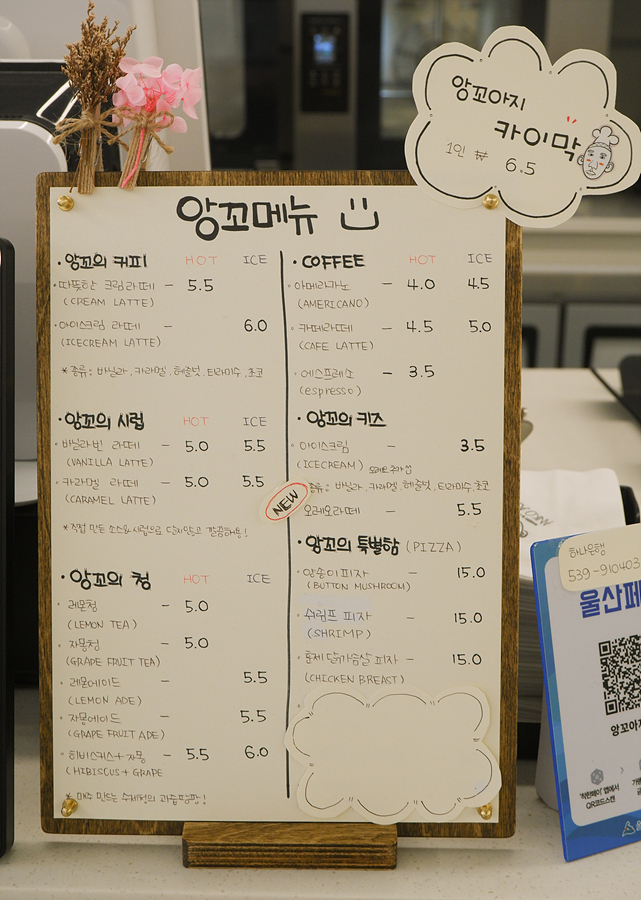 앙꼬아지
카이막
1인 ₩ 6.5
앙꼬메뉴
· 앙꼬의 커피 HOT ICE
· 따뜻한 크림라떼 - 5.5
(CREAM LATTE)
· 아이스크림 라떼 - 6.0
(ICECREAM LATTE)
* 종류: 바닐라, 카라멜, 헤즐넛, 티라미수, 초코
· 앙꼬의 시럽 HOT ICE
· 바닐라빈 라떼 - 5.0 5.5
(VANILLA LATTE)
· 카라멜 라떼 - 5.0 5.5
(CARAMEL LATTE)
* 직접 만든 소스&시럽으로 달지않고 깔끔해용!
· 앙꼬의 청 HOT ICE
· 레몬청 - 5.0
(LEMON TEA)
· 자몽청 - 5.0
(GRAPE FRUIT TEA)
· 레몬에이드 - 5.5
(LEMON ADE)
· 자몽에이드 - 5.5
(GRAPE FRUIT ADE)
· 히비스커스+자몽 - 5.5 6.0
(HIBISCUS + GRAPE
* 매주 만드는 수제청의 과즙팡팡!
· COFFEE HOT ICE
· 아메리카노 - 4.0 4.5
(AMERICANO)
· 카페라떼 - 4.5 5.0
(CAFE LATTE)
· 에스프레소 - 3.5
(espresso)
· 앙꼬의 키즈
· 아이스크림 - 3.5
(ICECREAM)
종류: 바닐라, 카라멜, 헤즐넛, 티라미수, 초코
NEW
오레오라떼 - 5.5
· 앙꼬의 특별함 (PIZZA)
· 양송이피자 - 15.0
(BUTTON MUSHROOM)
· 쉬림프 피자 - 15.0
(SHRIMP)
· 훈제 닭가슴살 피자 - 15.0
(CHICKEN BREAST)
하나은행
539-910403
울산페
앙꼬아지
QR코드스캔